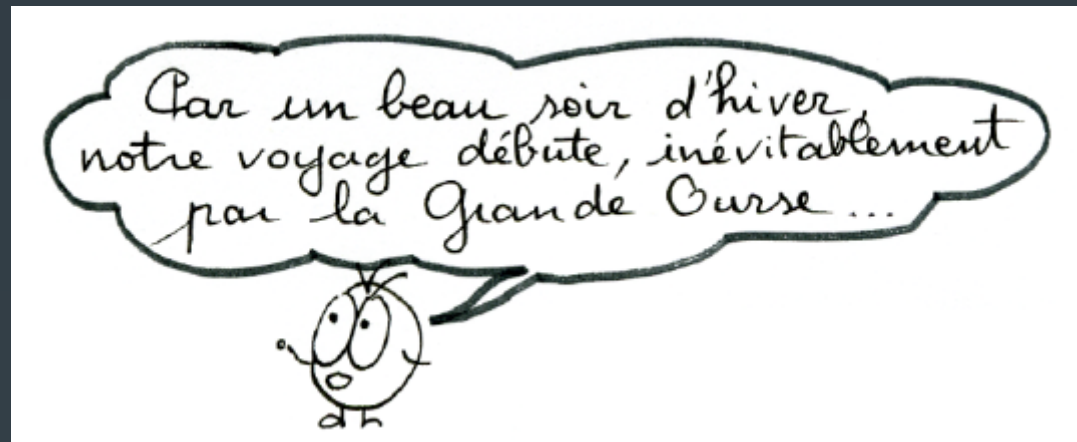 Par un beau soir d'hiver,
notre voyage débute, inévitablement
par la Grande Ourse...